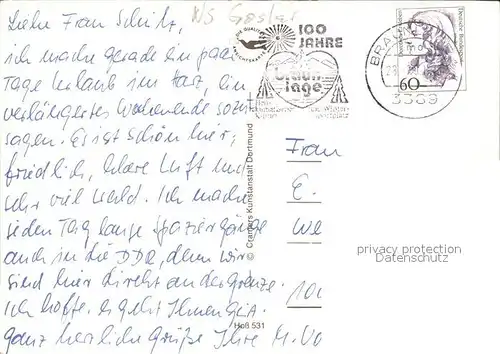 NS Goslar
Liebe Frau Schütz,
ich mache gerade ein paar
Tage Urlaub im Harz, ein
verlängertes Wochenende sozu
sagen. Es ist schön hier,
friedlich, klare Luft und
sehr viel Wald. Ich mache
jeden Tag lange Spaziergänge
auch in die DDR, denn wir
sind hier direkt an der Grenze.
Ich hoffe es geht Ihnen gut.
ganz herzliche Grüße Ihre M. Vo
100
JAHRE
Braun
lage
Heil-
klimatischer
Kurort
u. Winter-
sportplatz
BRAUN
3389
60
Deutsche Bundespost
© Cramers Kunstanstalt Dortmund
Hoß 531
Frau
E.
We
100
privacy protection
Datenschutz